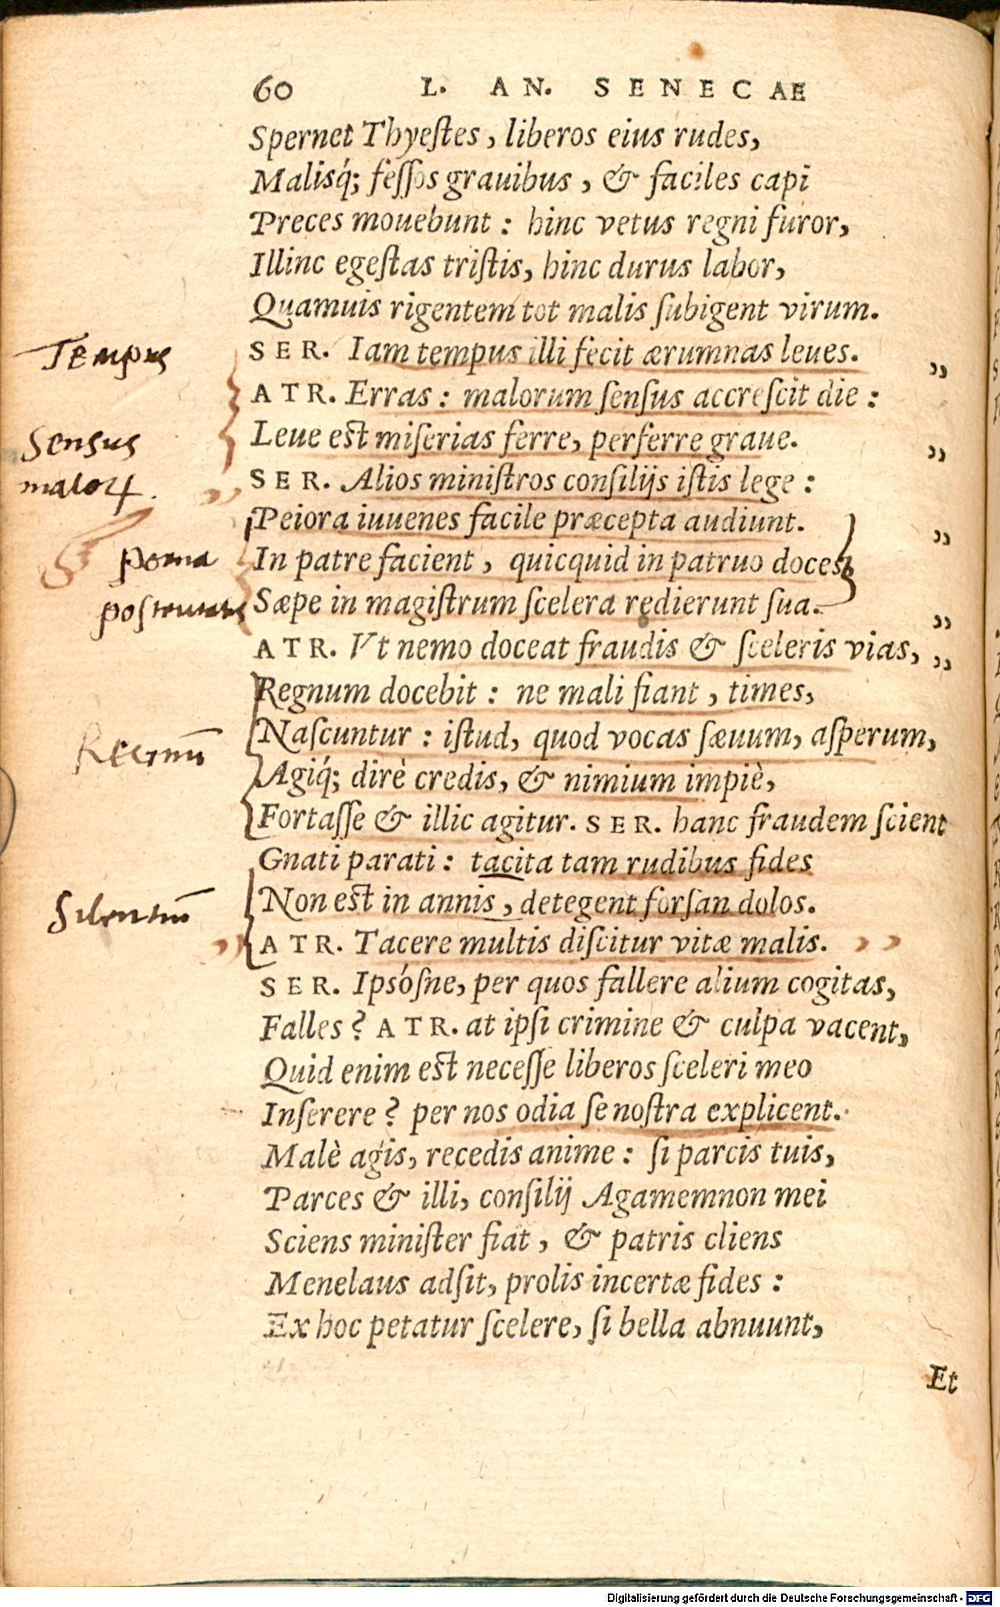 60 L. AN. SENECAE
Spernet Thyestes, liberos eius rudes,
Malisq́; feſſos grauibus, & faciles capi
Preces mouebunt: hinc vetus regni furor,
Illinc egeſtas triſtis, hinc durus labor,
Quamuis rigentem tot malis ſubigent virum.
Tempus
SER. Iam tempus illi fecit ærumnas leues. „
ATR. Erras: malorum ſenſus accreſcit die:
Sensus
Leue eſt miſerias ferre, perferre graue. „
malorꝝ.
SER. Alios miniſtros conſilijs iſtis lege:
Peiora iuuenes facile præcepta audiunt. „
In patre facient, quicquid in patruo doces,
Sæpe in magiſtrum ſcelera redierunt ſua. „
ATR. Vt nemo doceat fraudis & ſceleris vias, „
Regnum docebit: ne mali fiant, times,
Regnū
Naſcuntur: iſtud, quod vocas ſæuum, aſperum,
Agiq́; dirè credis, & nimium impiè,
Fortaſſe & illic agitur. SER. hanc fraudem ſcient
Gnati parati: tacita tam rudibus fides
Silentiū
Non eſt in annis, detegent forſan dolos.
ATR. Tacere multis diſcitur vitæ malis.
SER. Ipsóſne, per quos fallere alium cogitas,
Falles? ATR. at ipſi crimine & culpa vacent,
Quid enim eſt neceſſe liberos ſceleri meo
Inſerere? per nos odia ſe noſtra explicent.
Malè agis, recedis anime: ſi parcis tuis,
Parces & illi, conſilij Agamemnon mei
Sciens miniſter fiat, & patris cliens
Menelaus adſit, prolis incertæ fides:
Ex hoc petatur ſcelere, ſi bella abnuunt,
Et
Digitalisierung gefördert durch die Deutsche Forschungsgemeinschaft - DFG